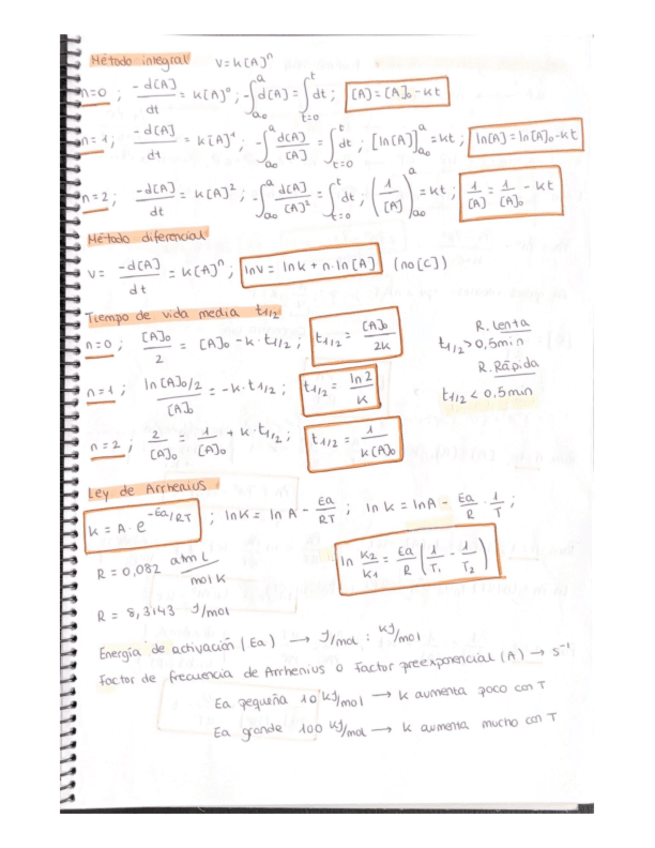 Método integral V=K[A]ⁿ
n=0 ; -d[A]/dt = K[A]⁰ ; -∫ₐ₀ᵃ d[A] = ∫ₜ₌₀ᵗ dt ; [A]=[A]₀-Kt
n=1 ; -d[A]/dt = K[A]¹ ; -∫ₐ₀ᵃ d[A]/[A] = ∫ₜ₌₀ᵗ dt ; [ln[A]]ₐ₀ᵃ =Kt ; ln[A]=ln[A]₀-Kt
n=2 ; -d[A]/dt = K[A]² ; -∫ₐ₀ᵃ d[A]/[A]² = ∫ₜ₌₀ᵗ dt ; (1/[A])ₐ₀ᵃ =Kt ; 1/[A] = 1/[A]₀ - Kt
Método diferencial
V= -d[A]/dt = K[A]ⁿ ; lnV = lnk + n·ln[A] (no[C])
Tiempo de vida media t1/2
n=0 ; [A]₀/2 = [A]₀ - K·t1/2 ; t1/2 = [A]₀/2K
R. Lenta
t1/2 > 0,5min
n=1 ; ln[A]₀/2/[A]₀ = -K·t1/2 ; t1/2 = ln2/K
R. Rápida
t1/2 < 0,5min
n=2 ; 2/[A]₀ = 1/[A]₀ + K·t1/2 ; t1/2 = 1/K[A]₀
Ley de Arrhenius
K = A·e^-Ea/RT ; lnK = ln A - Ea/RT ; ln K = lnA - Ea/R · 1/T ;
R = 0,082 atm L/mol K
ln K2/K1 = Ea/R (1/T1 - 1/T2)
R = 8,3143 J/mol
Energía de activación (Ea) → J/mol : KJ/mol
Factor de frecuencia de Arrhenius o factor preexponencial (A) → s⁻¹
Ea pequeña 10 KJ/mol → K aumenta poco con T
Ea grande 100 KJ/mol → K aumenta mucho con T